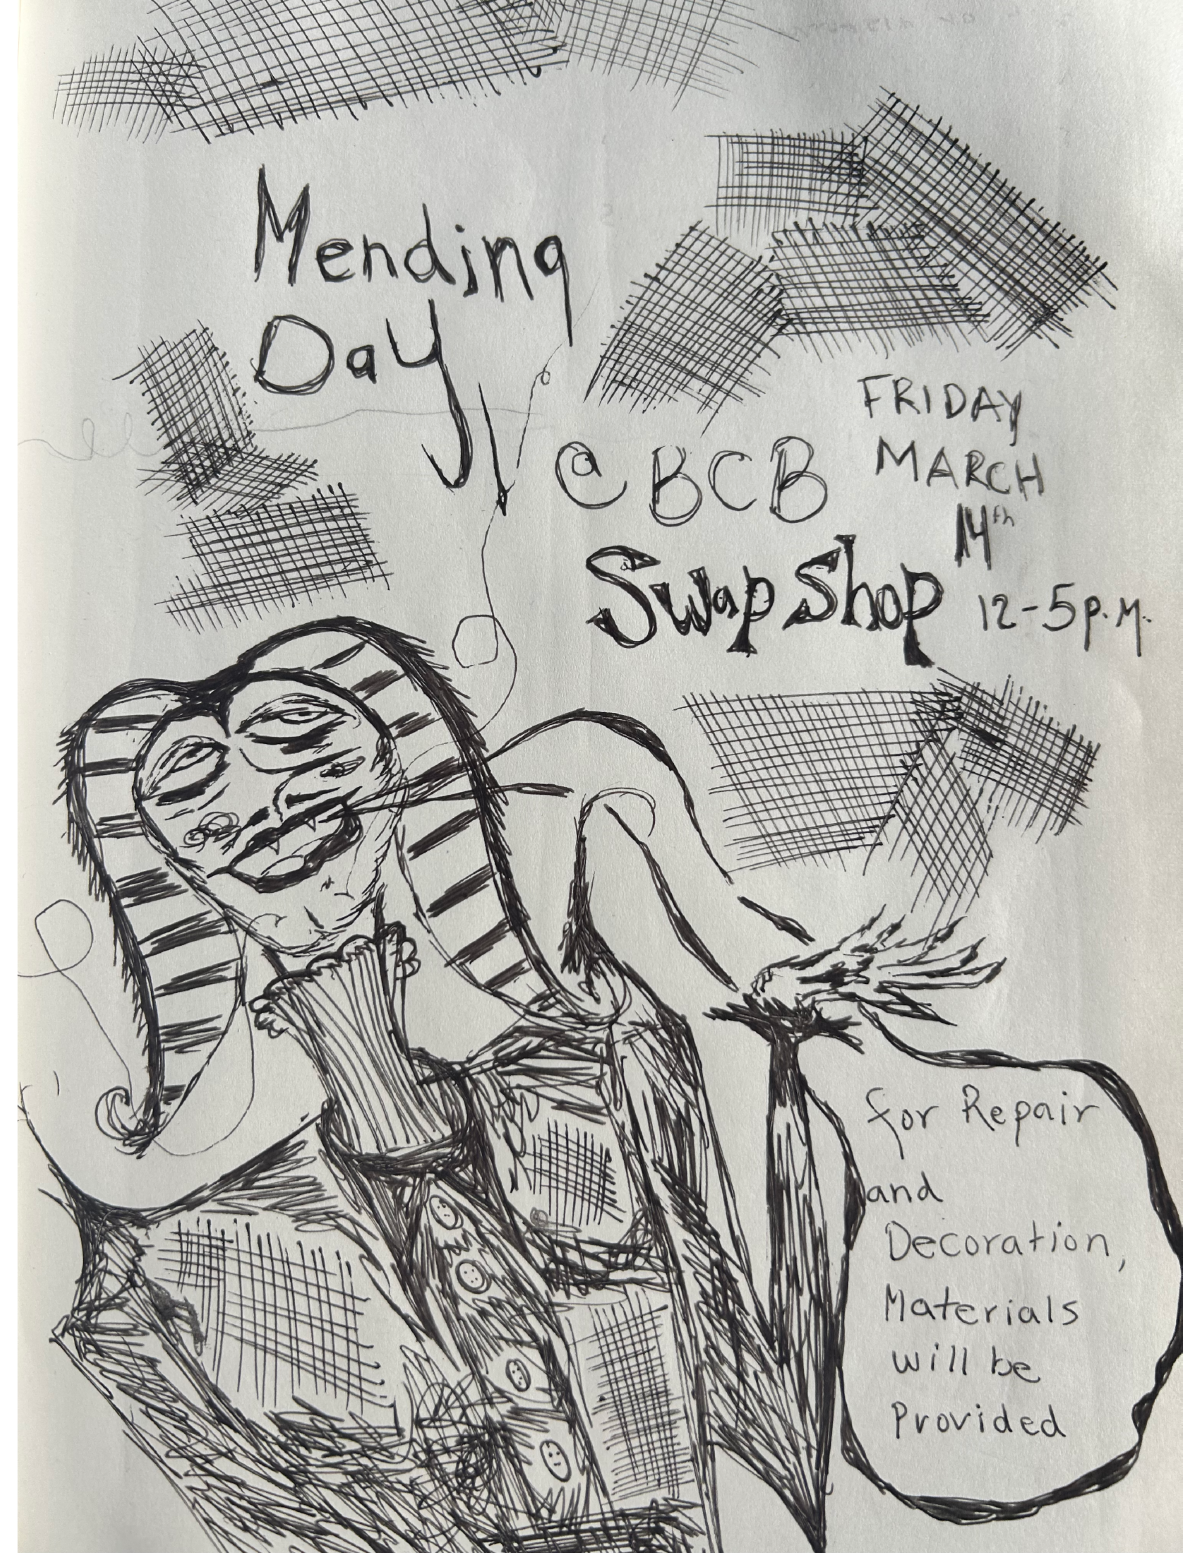 Mending
Day
@ BCB
Swap Shop
FRIDAY
MARCH
14th
12-5 p.m.
for Repair
and
Decoration,
Materials
will be
Provided